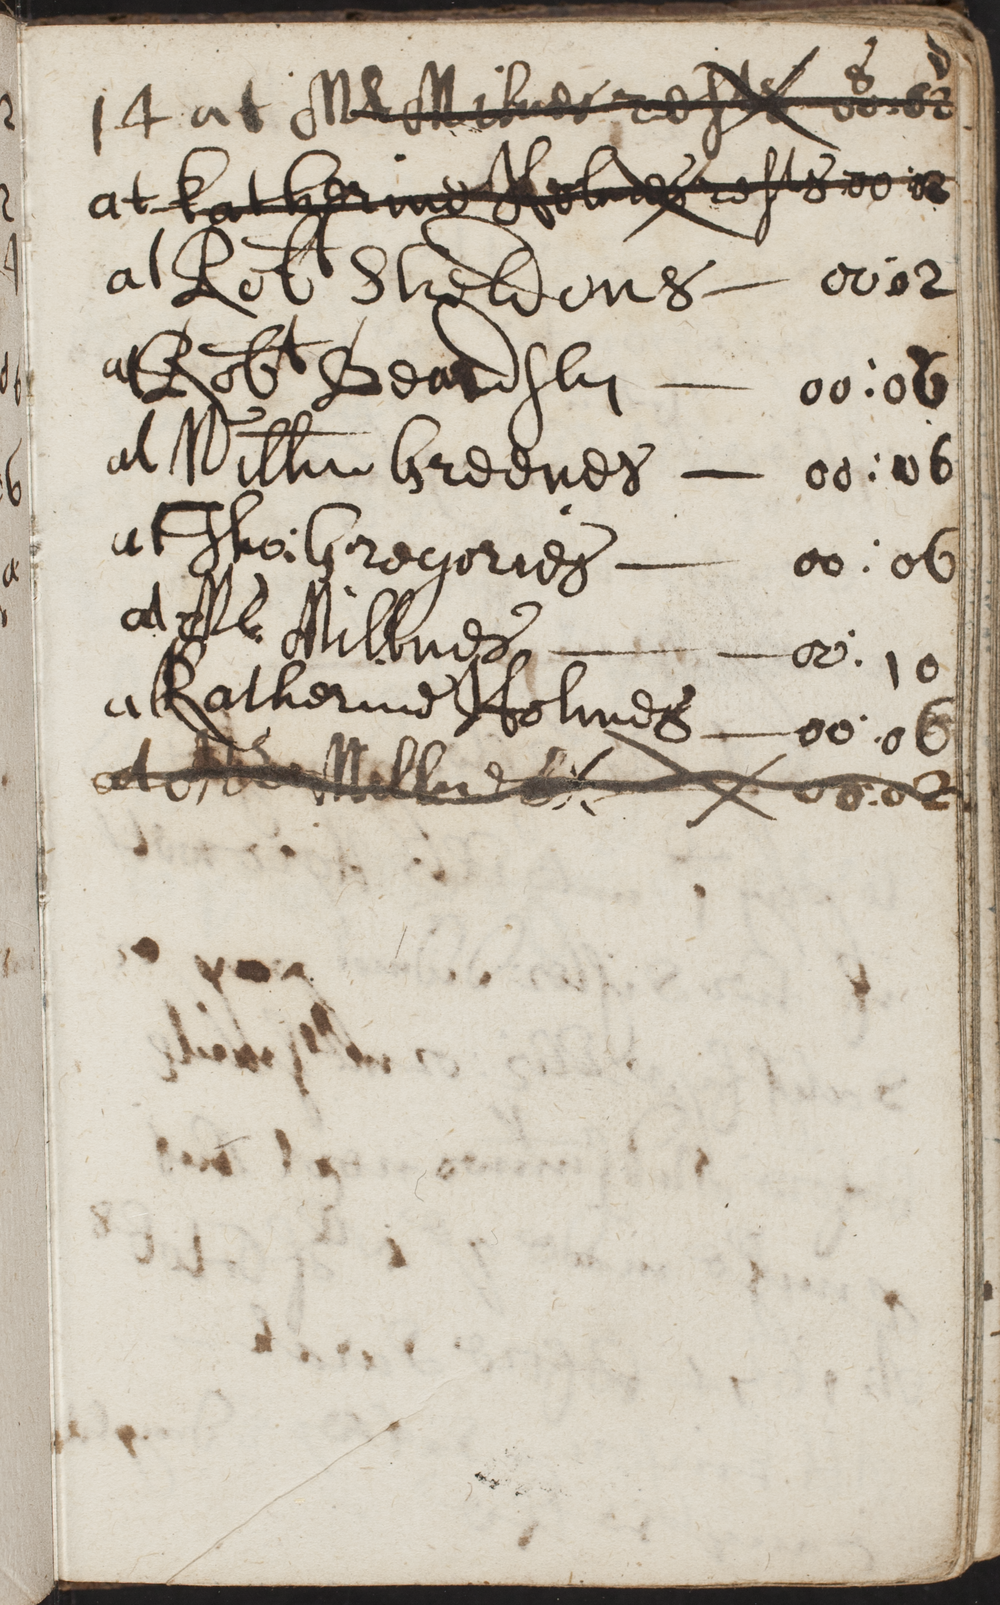 s d
14 at Mr Milnes rests 00:02
at Katherine Holmes rests 00 02
at Robt Sheldons — 00:02
at Robt Beardsly — 00:06
at Willm Greenes — 00:06
at Tho: Gregories — 00:06
at Mr Millnes — 00:10
at Katherine Holmes — 00:06
at Millnes 00:02